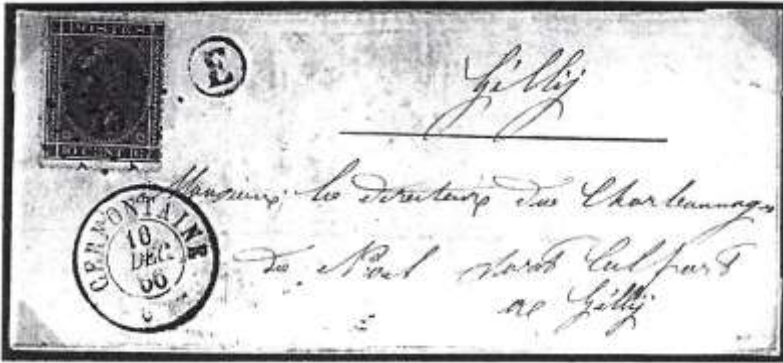 POSTES
E
Gilly
Monsieur le directeur du Charbonnage
de Noel Sart Culpart
a Gilly
CERFONTAINE
10
DEC
66